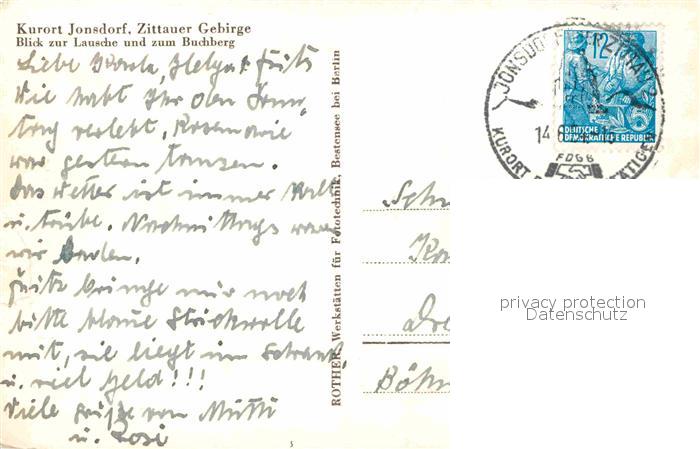 Kurort Jonsdorf, Zittauer Gebirge
Blick zur Lausche und zum Buchberg
Liebe Helga, Fritz
Wie habt Ihr den Sonn-
tag verlebt, Rosemarie
war gestern tanzen.
Das Wetter ist immer kalt
u. trübe. Nachmittags waren
wir baden.
Fritz bringe mir noch
bitte blaue Strickwolle
mit, sie liegt im Schrank
u. viel Geld!!!
Viele Grüße von Mutti
u. Rosi
ROTHER, Werkstätten für Fototechnik, Bestensee bei Berlin
JONSDORF
KURORT
14.8.
FDGB
12
DEUTSCHE
DEMOKRATISCHE REPUBLIK
Sch
Dre
Böhm
privacy protection
Datenschutz
5